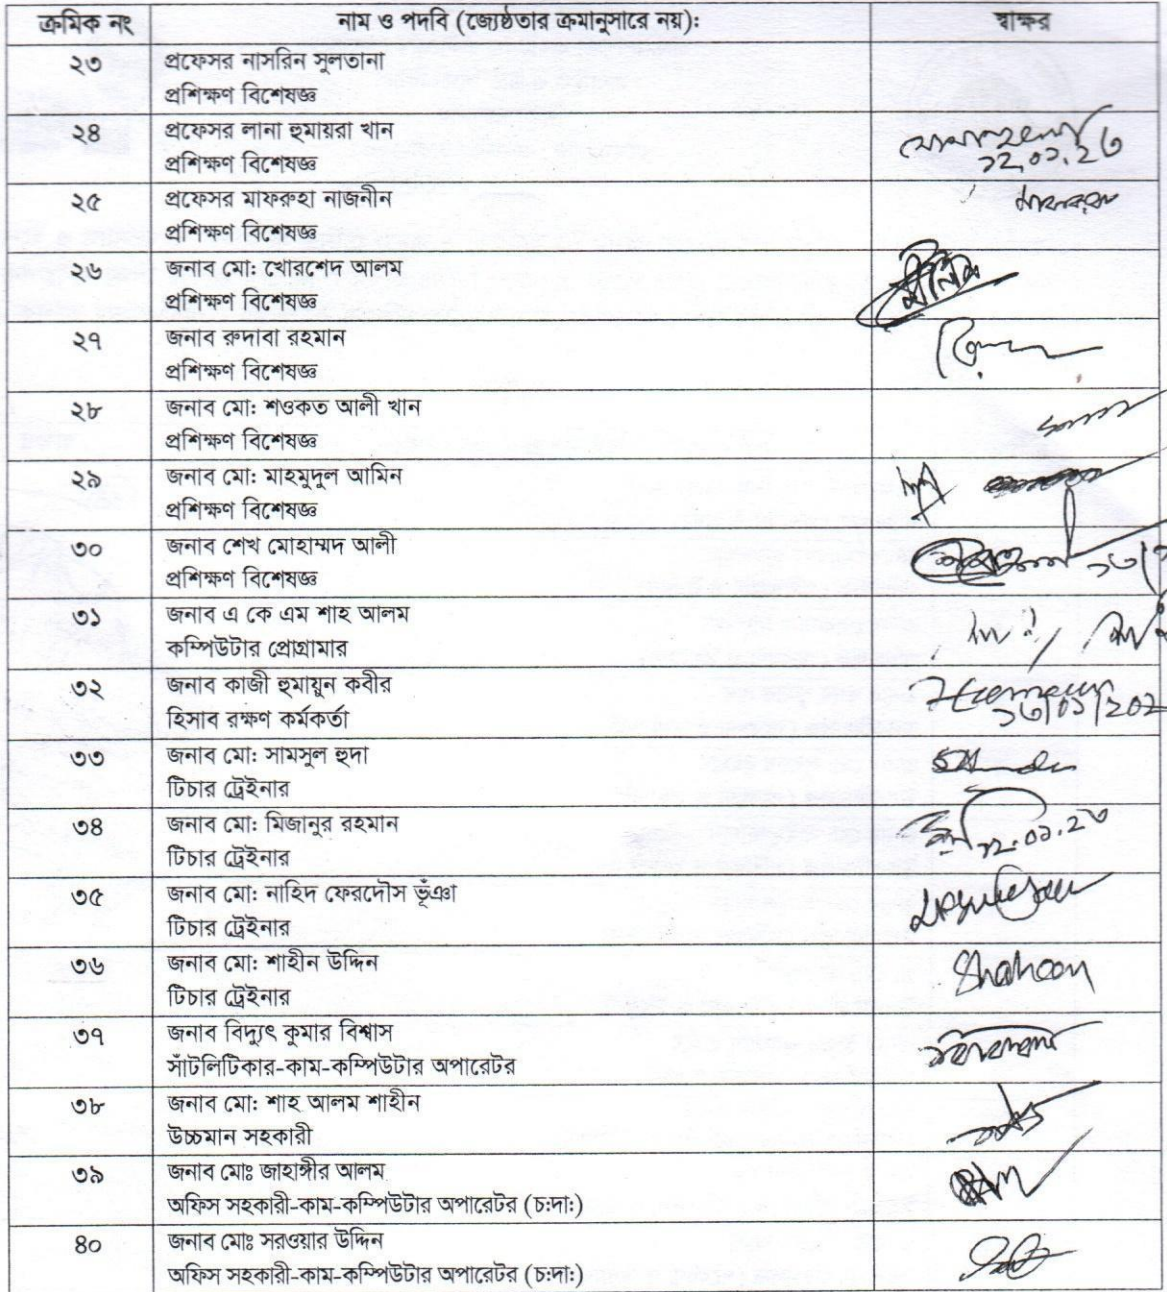 ক্রমিক নং নাম ও পদবি (জ্যেষ্ঠতার ক্রমানুসারে নয়): স্বাক্ষর
২৩ প্রফেসর নাসরিন সুলতানা
প্রশিক্ষণ বিশেষজ্ঞ
২৪ প্রফেসর লানা হুমায়রা খান
প্রশিক্ষণ বিশেষজ্ঞ ১২.০১.২৩
২৫ প্রফেসর মাফরুহা নাজনীন
প্রশিক্ষণ বিশেষজ্ঞ
২৬ জনাব মো: খোরশেদ আলম
প্রশিক্ষণ বিশেষজ্ঞ
২৭ জনাব রুদাবা রহমান
প্রশিক্ষণ বিশেষজ্ঞ
২৮ জনাব মো: শওকত আলী খান
প্রশিক্ষণ বিশেষজ্ঞ
২৯ জনাব মো: মাহমুদুল আমিন
প্রশিক্ষণ বিশেষজ্ঞ
৩০ জনাব শেখ মোহাম্মদ আলী
প্রশিক্ষণ বিশেষজ্ঞ
৩১ জনাব এ কে এম শাহ আলম
কম্পিউটার প্রোগ্রামার
৩২ জনাব কাজী হুমায়ুন কবীর
হিসাব রক্ষণ কর্মকর্তা
৩৩ জনাব মো: সামসুল হুদা
টিচার ট্রেইনার
৩৪ জনাব মো: মিজানুর রহমান
টিচার ট্রেইনার ১২.০১.২৩
৩৫ জনাব মো: নাহিদ ফেরদৌস ভূঁঞা
টিচার ট্রেইনার
৩৬ জনাব মো: শাহীন উদ্দিন Shaheen
টিচার ট্রেইনার
৩৭ জনাব বিদ্যুৎ কুমার বিশ্বাস
সাঁটলিটিকার-কাম-কম্পিউটার অপারেটর
৩৮ জনাব মো: শাহ আলম শাহীন
উচ্চমান সহকারী
৩৯ জনাব মোঃ জাহাঙ্গীর আলম
অফিস সহকারী-কাম-কম্পিউটার অপারেটর (চ:দা:)
৪০ জনাব মোঃ সরওয়ার উদ্দিন
অফিস সহকারী-কাম-কম্পিউটার অপারেটর (চ:দা:)